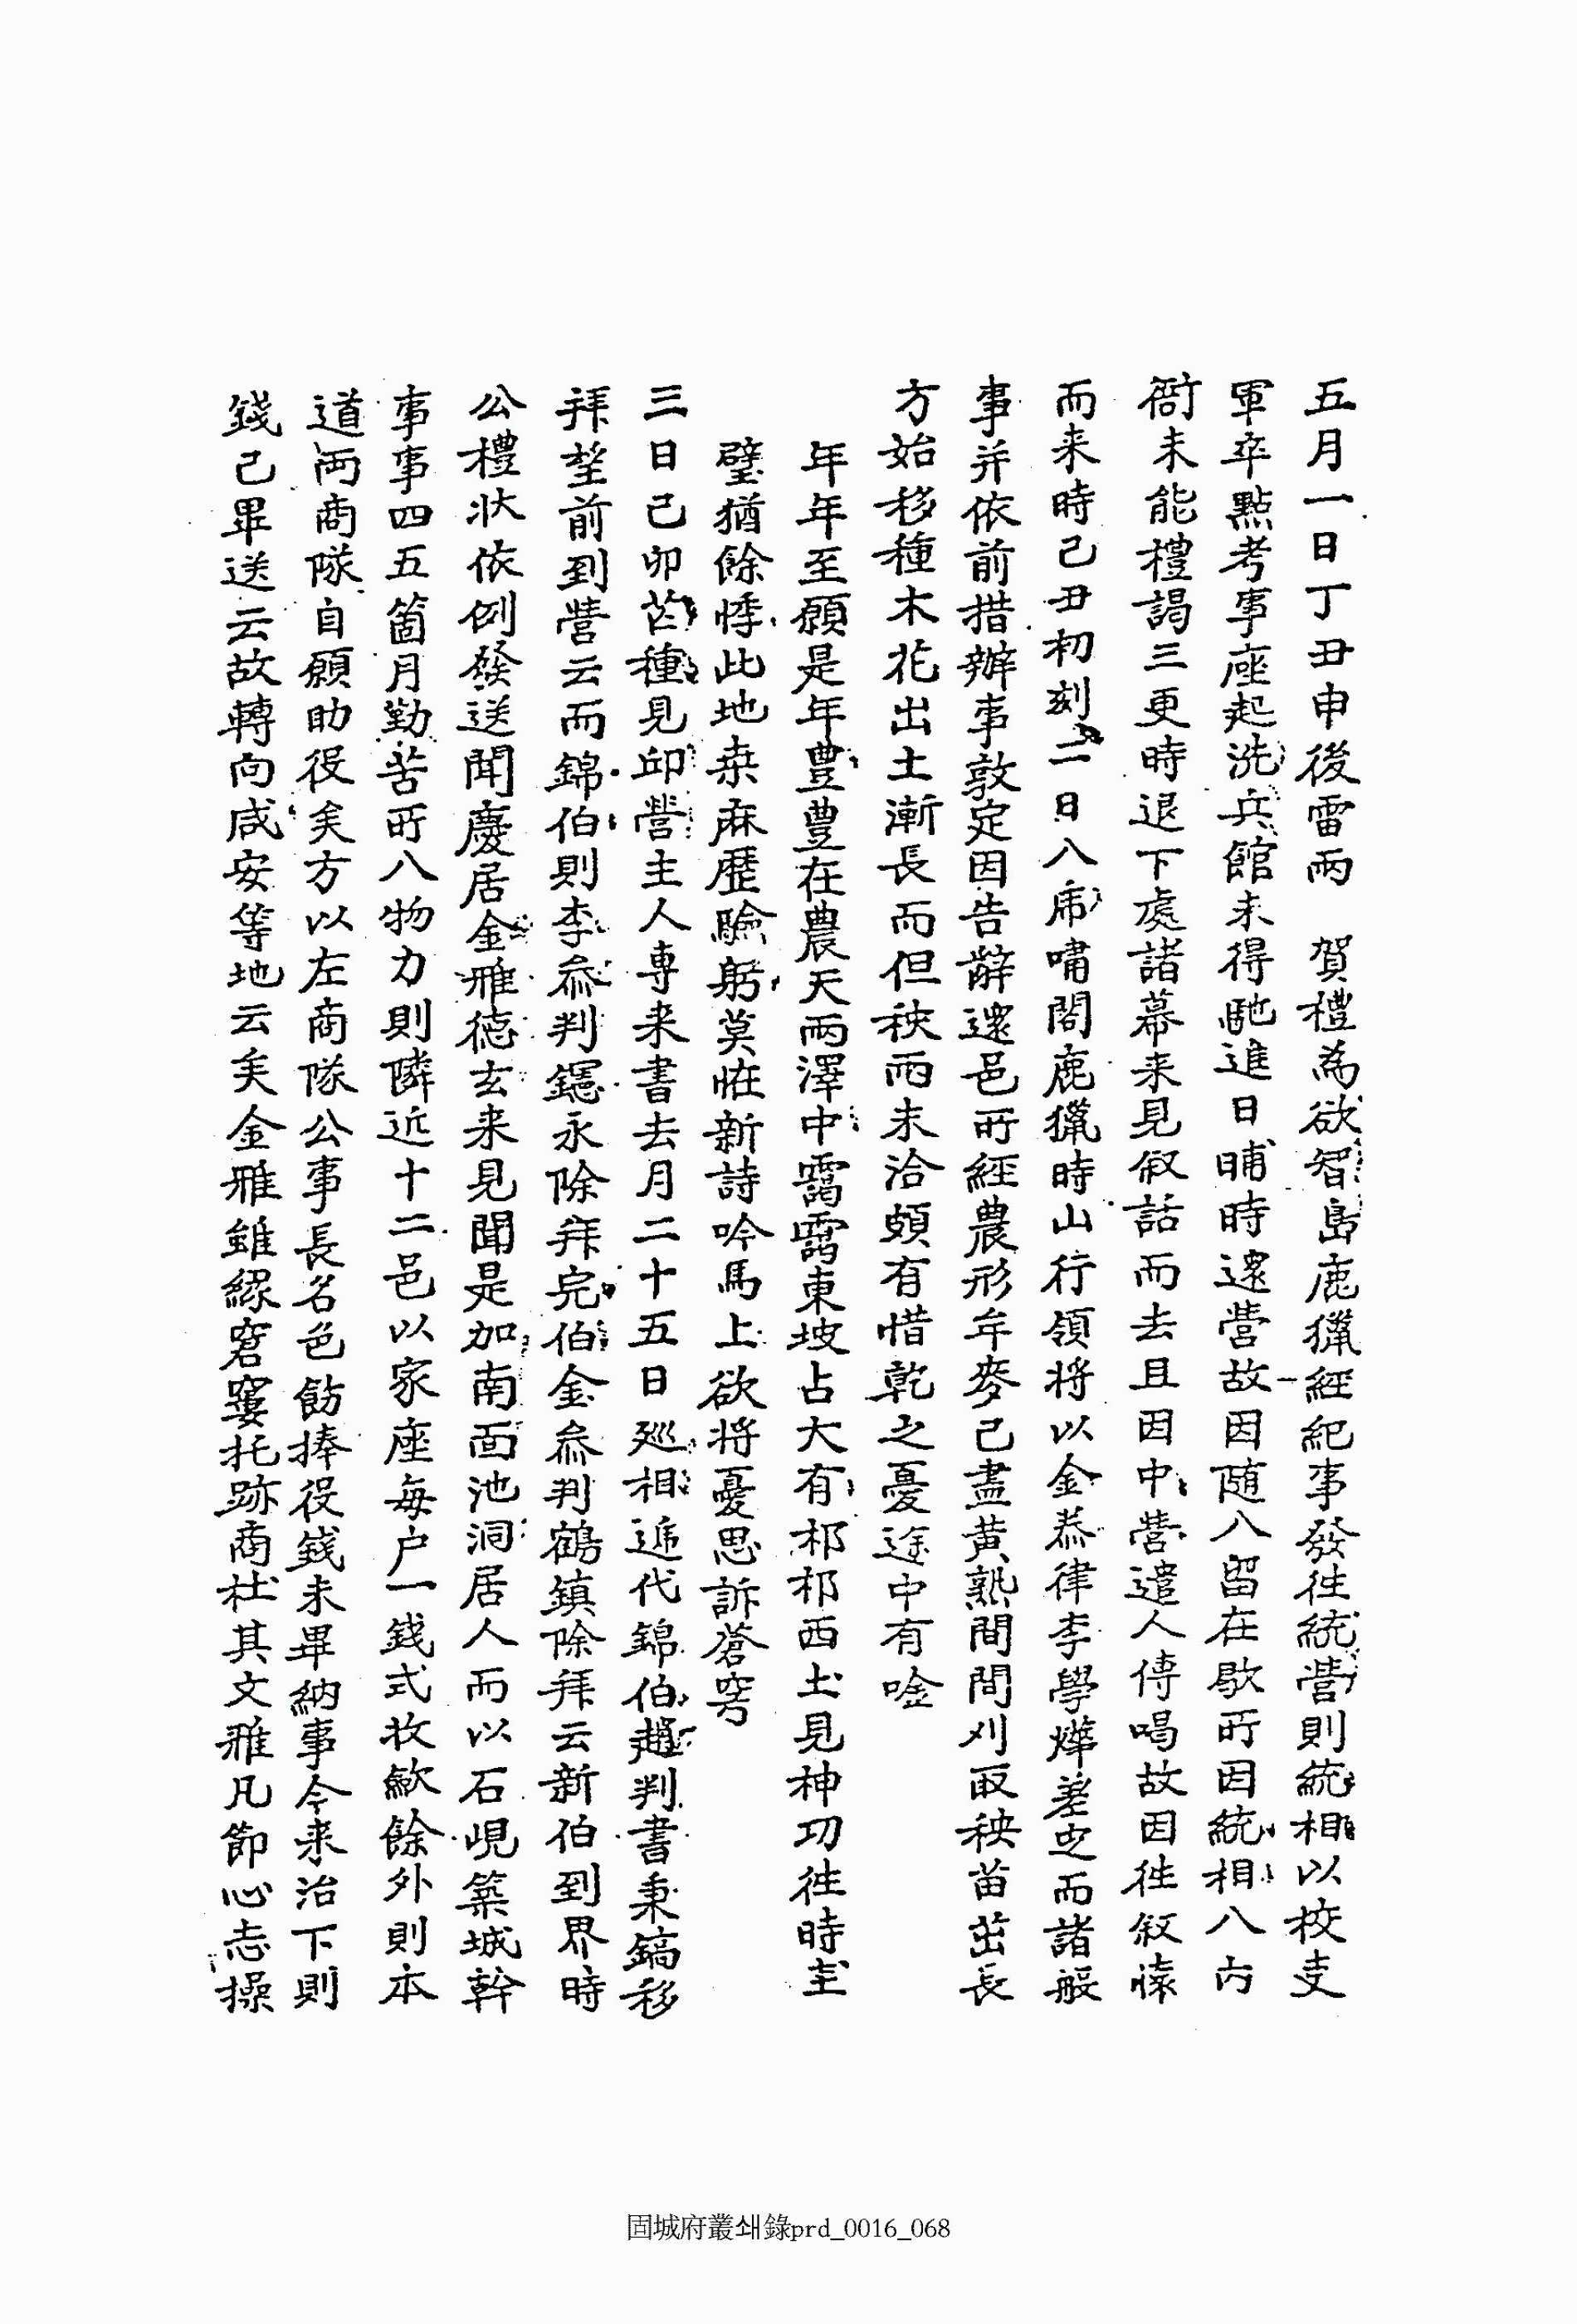 五月一日丁丑申後雷雨 賀禮為欲智島鹿獵經紀事發徃統營則統相以校吏
軍卒點考事座起洗兵館未得馳進日晡時還營故因随入留在歇所因統相入內
衙未能禮謁三更時退下處諸幕来見叙話而去且因中營遣人傳喝故因徃叙懐
而来時己丑初刻二日入席嘯閣鹿獵時山行領將以金恭律李學燁差定而諸般
事并依前措辦事敦定因告辭還邑所經農形牟麥已盡黄熟間間刈取秧苗茁長
方始移種木花出土漸長而但秧雨未洽頗有惜乾之憂途中有唫
年年至願是年豊豊在農天雨澤中靄靄東坡占大有祁祁西土見神功徃時圭
璧猶餘悸此地桒麻歷驗躬莫恠新詩吟馬上欲將憂思訴蒼穹
三日己卯芒種見邱營主人專来書去月二十五日廵相逓代錦伯趙判書秉鎬移
拜望前到營云而錦伯則李叅判鑂永除拜完伯金叅判鶴鎮除拜云新伯到界時
公禮状依例發送聞慶居金雅德玄来見聞是加南面池洞居人而以石峴築城幹
事事四五箇月勤苦所入物力則隣近十二邑以家座每户一錢式收歛餘外則本
道两商隊自願助役矣方以左商隊公事長名色飭捧役錢未畢納事今来治下則
錢已畢送云故轉向咸安等地云矣金雅雖緣窘窶托跡商社其文雅凡節心志操
固城府叢쇄錄prd_0016_068